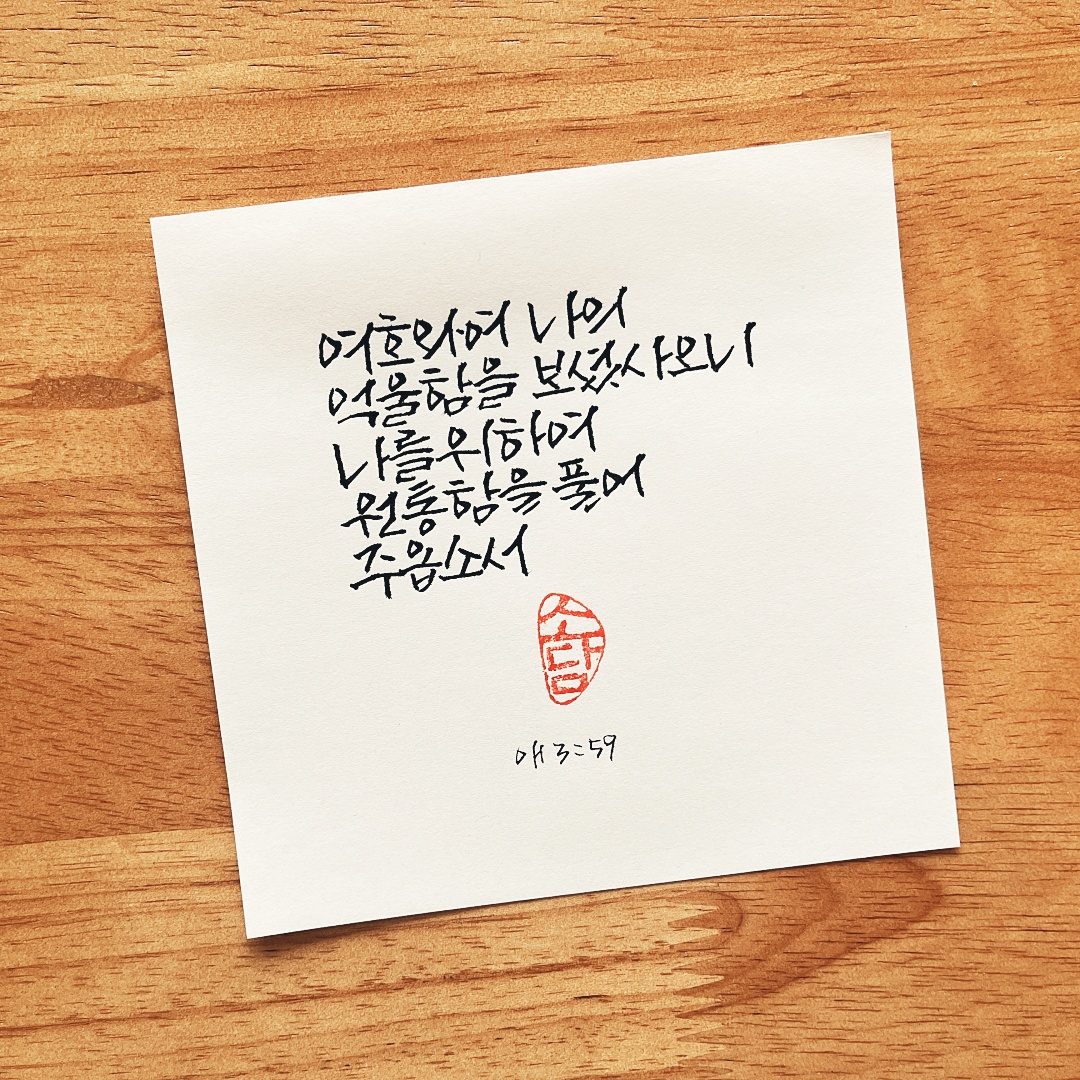 여호와여 나의
억울함을 보셨사오니
나를 위하여
원통함을 풀어
주옵소서
소담
애 3:59